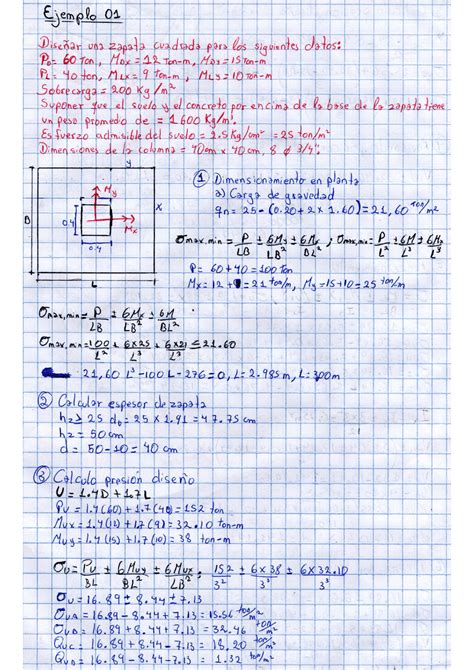 Ejemplo 01
Diseñar una zapata cuadrada para los siguientes datos:
P₀= 60 Ton, MDx = 12 Ton-m, MDy = 15 Ton-m
PL = 40 ton, MLx = 9 Ton-m, MLy = 10 Ton-m
Sobrecarga = 200 Kg/m²
Suponer que el suelo y el concreto por encima de la base de la zapata tiene
un peso promedio de = 1600 Kg/m³.
Esfuerzo admisible del suelo = 2.5 Kg/cm² = 25 ton/m²
Dimensiones de la columna = 40cm x 40 cm, 8 ∅ 3/4".
y
x
My
Mx
0.4
0.4
B
L
① Dimensionamiento en planta
a) Carga de gravedad
qn = 25 - (0.20 + 2 x 1.60) = 21,60 ton/m²
σmax,min = P/LB ± 6My/LB² ± 6Mx/BL² ; σmax,min = P/L² ± 6M/L³ ± 6Mx/L³
P = 60 + 40 = 100 ton
= 21 ton/m, My = 15 + 10 = 25 ton/m
σmax,min = P/LB ± 6Mx/LB² ± 6M/BL²
σmax,min = 100/L² ± 6x25/L³ ± 6x21/L³ ≤ 21.60
21,60 L³ - 100 L - 276 = 0, L = 2.985 m, L = 300m
② Calcular espesor de zapata
hz ≥ 25 db = 25 x 1.91 = 47.75 cm
hz = 50 cm
d = 50 - 10 = 40 cm
③ Calculo presión diseño
U = 1.4D + 1.7L
PU = 1.4(60) + 1.7(40) = 152 ton
Mux = 1.4(12) + 1.7(9) = 32.10 ton-m
Muy = 1.4(15) + 1.7(10) = 38 ton-m
σU = PU/BL ± 6Muy/BL² ± 6Mux/LB² ; 152/3² ± 6x38/3³ ± 6x32.10/3³
σU = 16.89 ± 8.44 ± 7.13
σUA = 16.89 - 8.44 + 7.13 = 15.56 ton/m²
σUB = 16.89 + 8.44 + 7.13 = 32.46 ton/m²
QUC = 16.89 + 8.44 - 7.13 = 18,20 ton/m²
QUD = 16.89 - 8.44 - 7.13 = 1.32 ton/m²